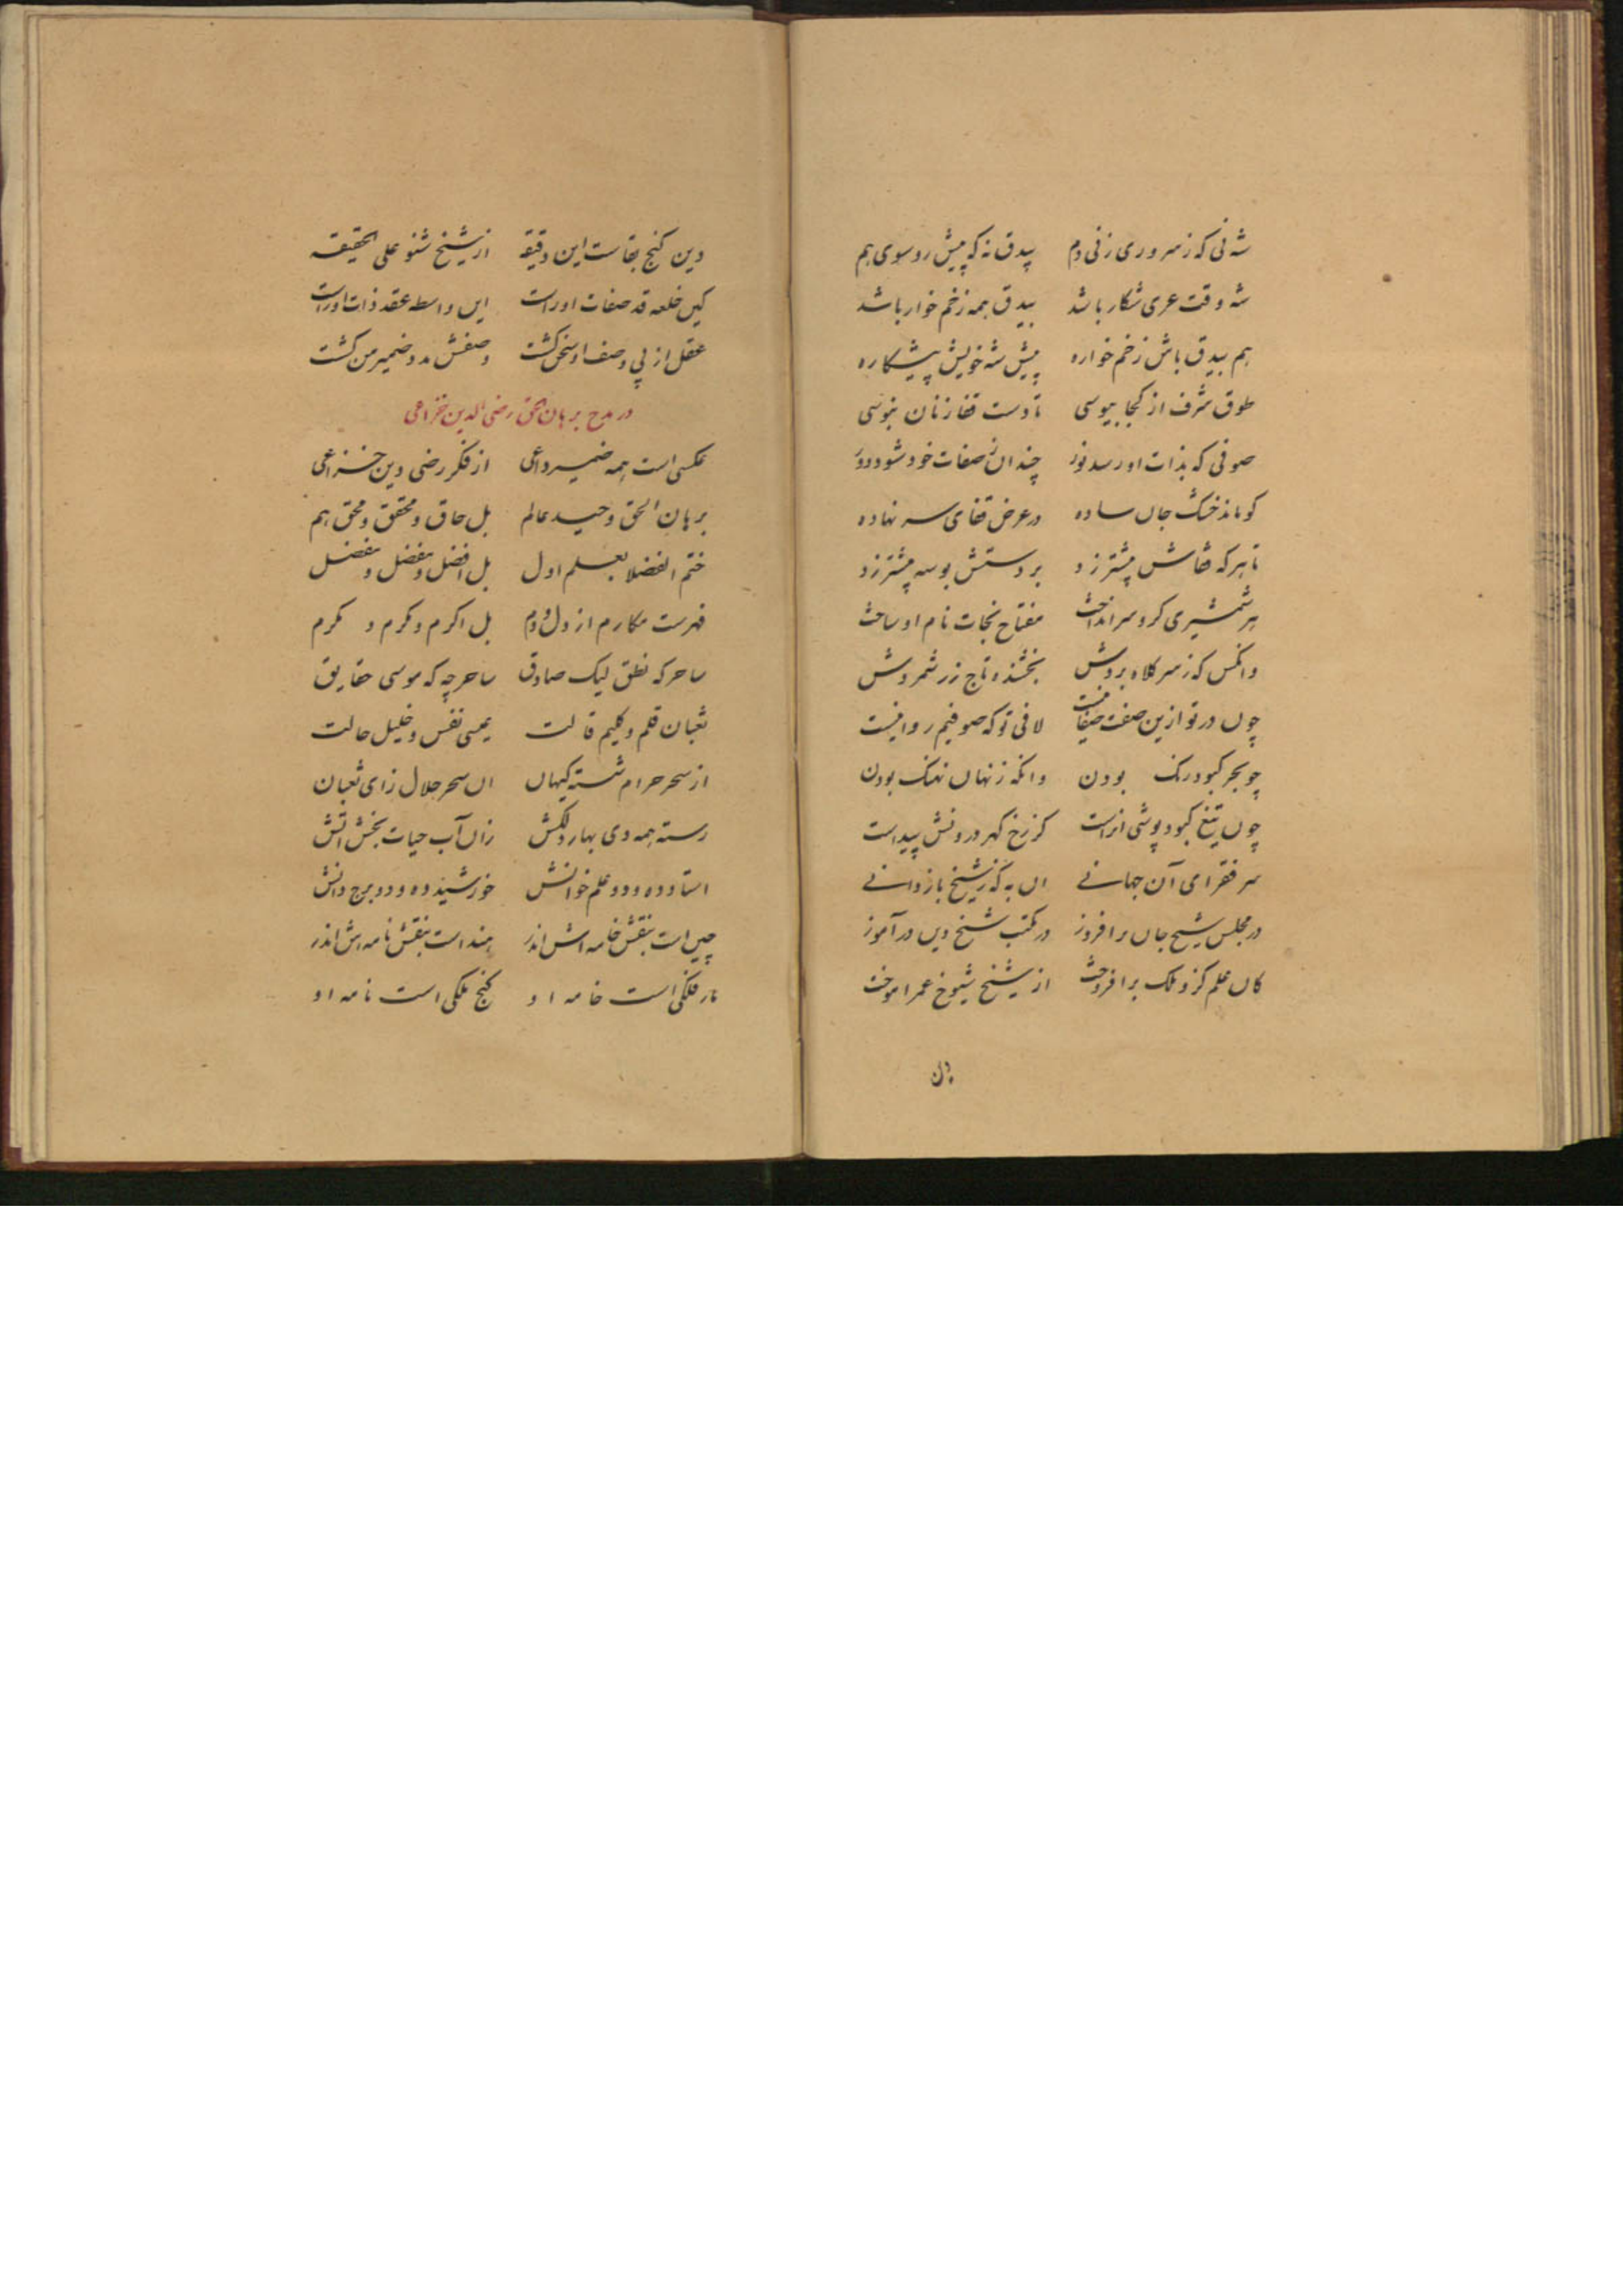 شه نی که ز سروری زنی دم پیدق نه که پیش رو سوی هم
شه وقت عری شکار باشد بیدق همه زخم خوار باشد
هم بیدق باش زخم خواره پیش شه خویش پیشکاره
طوق شرف از کجا ببوسی تا دست قفا زنان نبوسی
صوفی که بذات او رسد نور چندان ز صفات خود شود دور
کو ماند خشک جان ساده در عرض قفای سر نهاده
تا هر که قفاش پیشتر زد بر دستش بوسه پیشتر زد
هر شمشیری کرو سر انداخت مفتاح نجات نام او ساخت
وانکس که ز سر کلاه بردش بخشنده تاج زر شمردش
چون در تو ازین صفت صفا نیست لافی تو که صوفیم روا نیست
چو بحر کبود رنک بودن وانکه ز نهان نهنک بودن
چون تیغ کبود پوشی اراست کز زخ کهر درونش پیداست
سر فقرا می آن جهانے ان به که ز شیخ باز دانے
در مجلس شیخ جان بر افروز در مکتب شیخ دین در آموز
کان علم کزو ملک بر افروخت از شیخ شیوخ عمر اموخت
دین کنج بقاست این دقیقه از شیخ شنو علی الحقیقه
کین خلعه قد صفات اوراست این واسطه عقد ذات اوراست
عقل از پی وصف او سخن کشت وصفش مدد ضمیر من کشت
در مدح برهان الحق رضی الدین خزاعی
عکسی است همه ضمیر داعی از فکر رضی دین خزاعی
برهان الحق وحید عالم بل حاق و محقق و محق هم
ختم الفضلا بعلم اول بل افضل و مفضل و مفضل
فهرست مکارم از دل و دم بل اکرم و مکرم و مکرم
ساحر که نطق لیک صادق ساحر چه که موسی حقایق
ثعبان قلم و کلیم قالت عیسی نفس و خلیل حالت
از سحر حرام شسته کیهان ان سحر حلال زای ثعبان
رسته همه دی بهار دلکش زان آب حیات بخش اتش
استاد ده و دو علم خوانش خورشید ده و دو برج دانش
چین است بنقش خامه اش اندر هند است بنقش نامه اش اندر
مار فلکی است خامه او کنج ملکی است نامه او